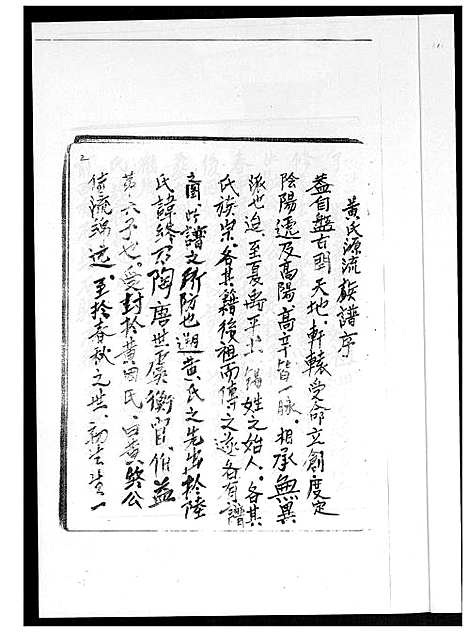 黃氏源流族譜序
蓋自盤古開天地，軒轅受命立創度定
陰陽，遞及高陽、高辛皆一脉，相承無異
派也。迨至夏禹平土，錫姓之始，人各其
氏族宗，各其籍後祖而傳之，遂各有譜
圖，此譜之所昉也。遡黃氏之先出於陸
氏諱終，為陶唐世 衡官，佰益
第六子也。受封於黃國氏，曰黃 公
流 遠，至於春秋之世，初生一
2